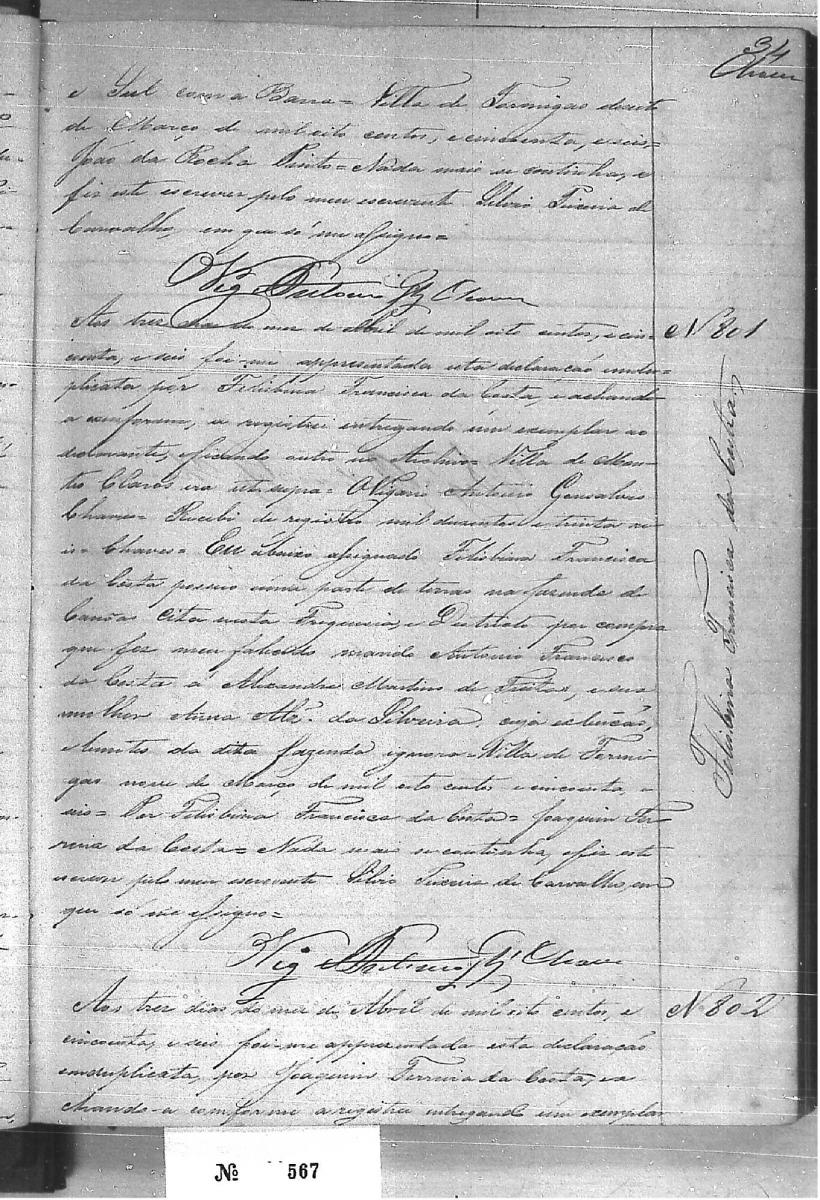 34
Chaves
e Sul com a Barra = Villa de Formigas dezoito
de Março de mil oito centos, e cincoenta, e seis =
João da Rocha Pinto = Nada mais se continha, e
fiz este escrever pelo meu escrevente Silvio Teixeira de
Carvalho, em que só me assigno =
O Vig.o Antonio Glz Chaves
Aos tres dias do mez de Abril de mil oito centos, e cin-
N 801
coenta, e seis foi-me appresentada esta declaração emdu-
plicata por Felisbina Francisca da Costa, e achando
a comforme, a registrei entregando um exemplar ao
declarante, e ficando outro no Archivo = Villa de Mon-
tes Claros era ut supra = O Vigario Antonio Gonsalves
Chaves = Recebi de registro mil duzentos e trinta re-
is = Chaves = Eu abaixo assignado Felisbina Francisca
da Costa possuo uma parte de terras na fazenda de
Canôas cita nesta Freguezia, e Districto por compra
que fez meu falecido marido Antonio Francisco
da Costa a Alexandre Martins de Freitas, e sua
mulher Anna da Silveira cuja
e limites da dita fazenda ignoro = Villa de Formi-
gas nove de Março de mil oito centos e cincoenta, e
seis = Por Felisbina Francisca da Costa = Joaquim Fer-
reira da Costa = Nada mais se continha, e fiz este
escrever pelo meu escrevente Silvio Teixeira de Carvalho, em
que só me assigno =
Felisbina Francisca da Costa
Vig.o Antonio Glz Chaves
Aos tres dias do mez de Abril de mil oito centos, e
N 802
cincoenta, e seis foi-me appresentada esta declaração
emduplicata, por Joaquim Ferreira da Costa, e a
chando-a comforme a registrei entregando um exemplar
No 567